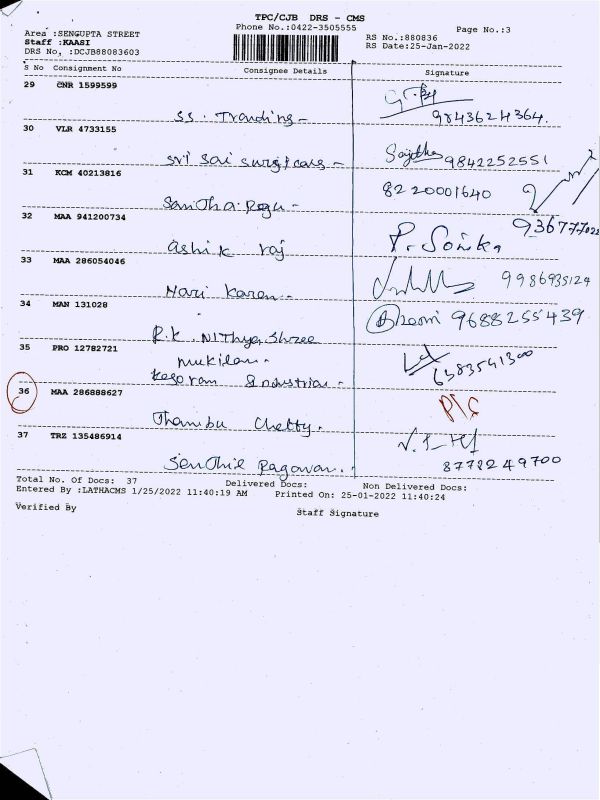 TPC/CJB DRS - CMS
Phone No.:0422-3505555
Page No.:3
Area :SENGUPTA STREET
RS No.:880836
Staff :KAASI
RS Date:25-Jan-2022
DRS No, :DCJB88083603
S No Consignment No Consignee Details Signature
29 CNR 1599599
SS. Tranding - 9843624364.
30 VLR 4733155
Sri Sai Surgicals - Sajitha 9842252551
31 KCM 40213816
8220001640
Santha Regu -
32 MAA 941200734
Ashik raj P. Sonika
33 MAA 286054046
Hari Karan - 9986935124
34 MAN 131028
9688255439
R.K. Nithya Shree
35 PRO 12782721
Mukilan -
Kesoram Industries - 6383541300
36 MAA 286888627
Thambu Chetty.
37 TRZ 135486914
Senthil Ragavan. 8778249700
Total No. Of Docs: 37 Delivered Docs: Non Delivered Docs:
Entered By :LATHACMS 1/25/2022 11:40:19 AM Printed On: 25-01-2022 11:40:24
Verified By Staff Signature